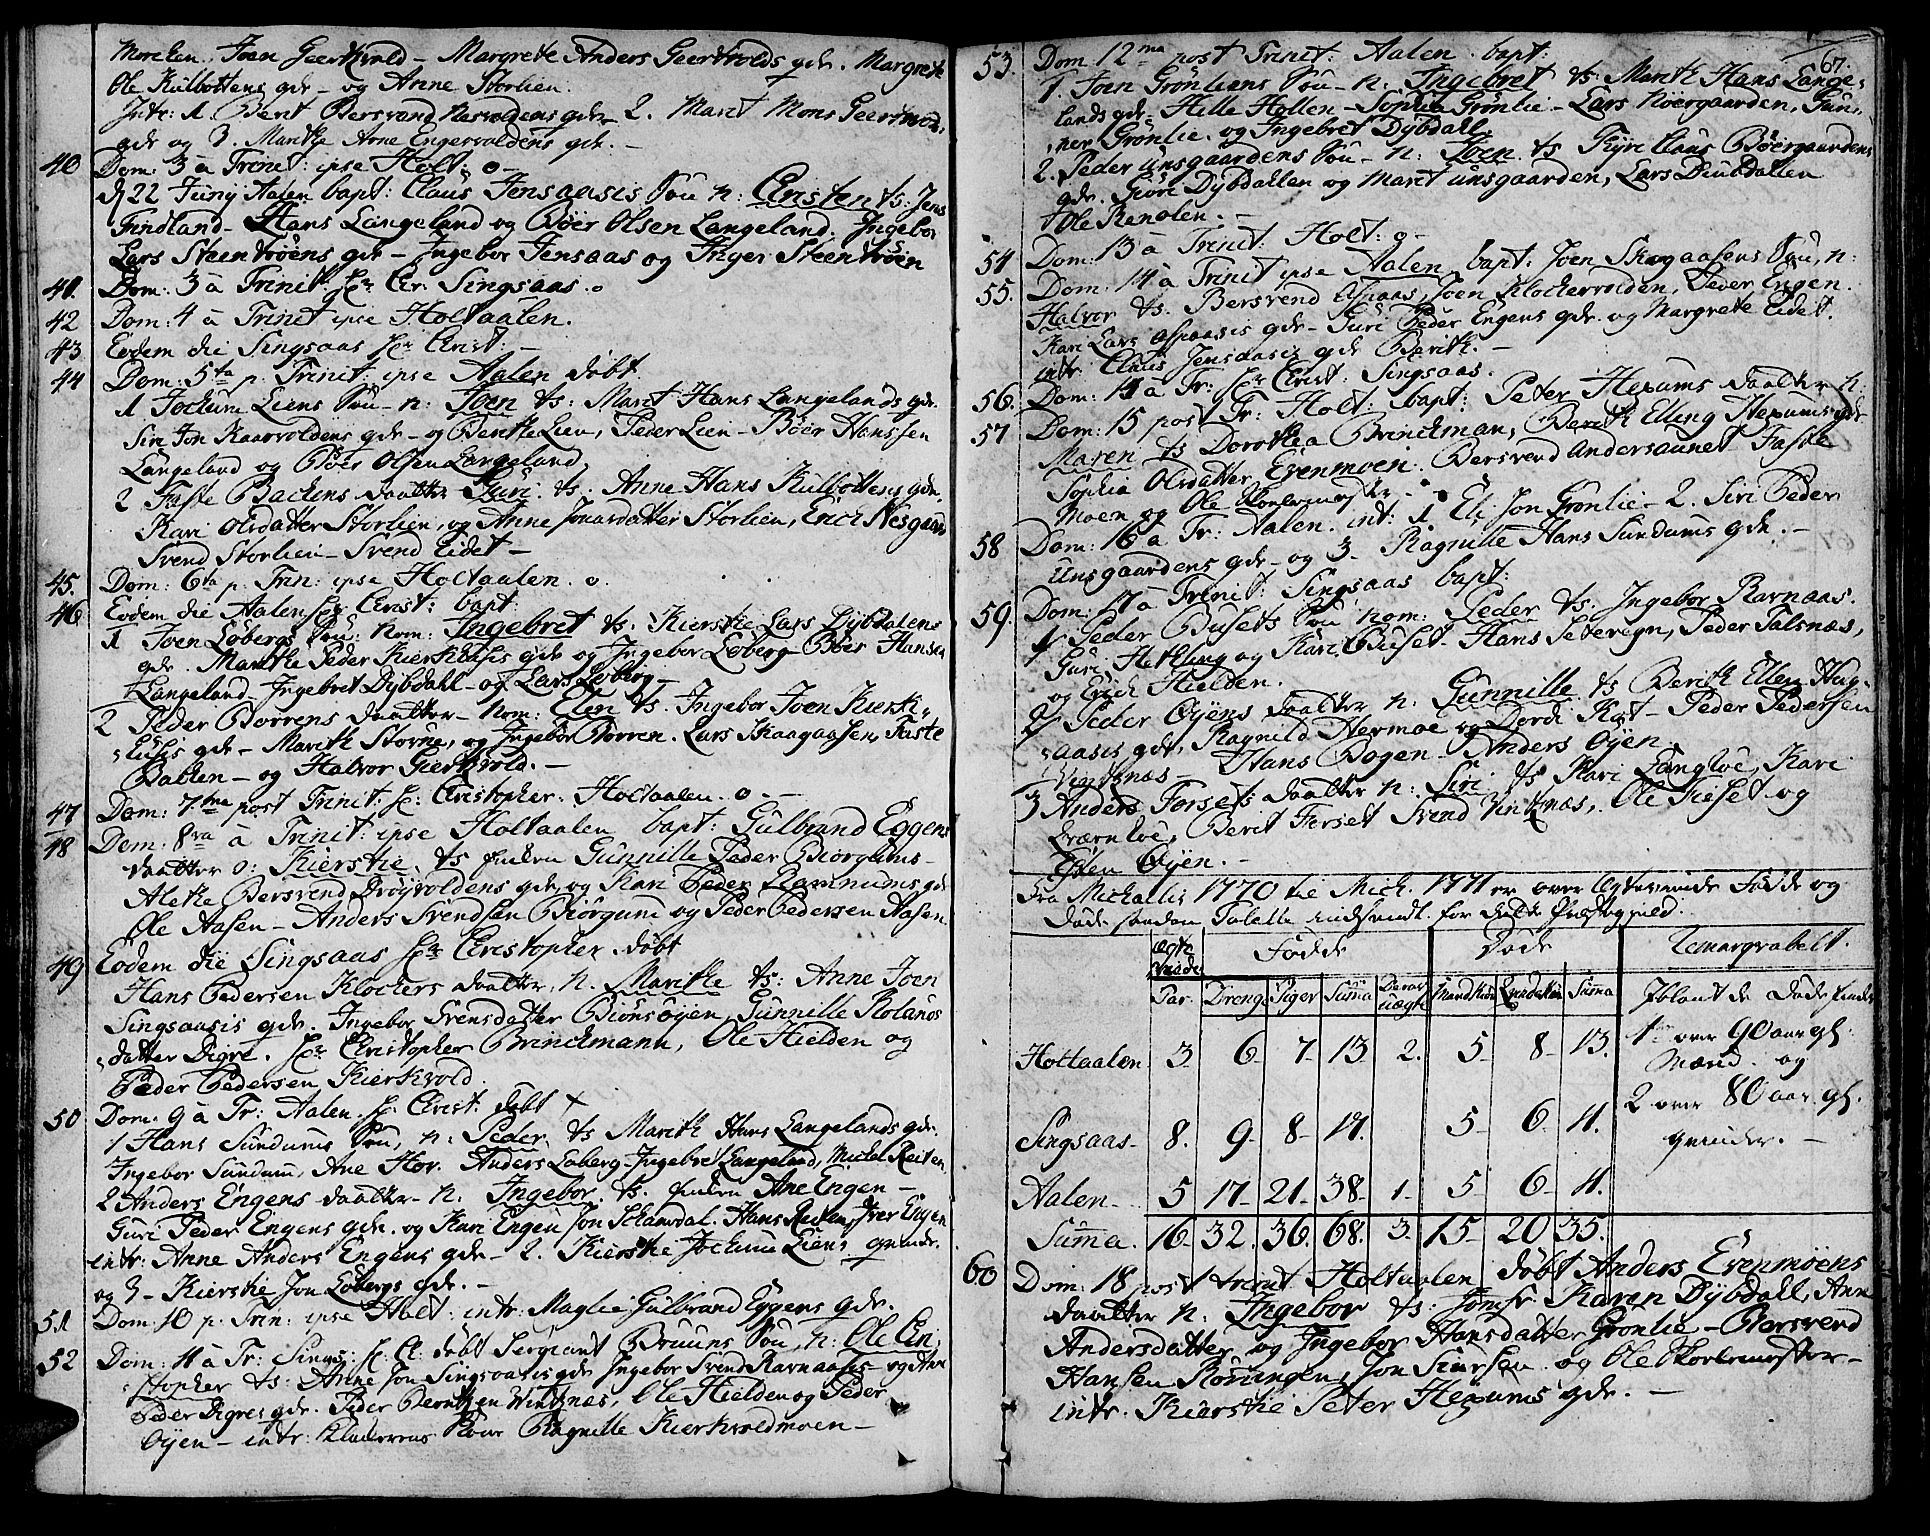 Joen Geerthvold - Margrete Anders Geertvolds gdr. Margrete
Ole Kulbottens gdr - og Anne Storlien.
Intr: 1 Berit Bersvend gdr - 2. Maret Mons
gdr og 3. Marithe Arne Engesvoldens gdr. -
40 Dom: 3 à Trinit: ipse Holt: o -
d 22 Juny Aalen bapt: Claus Jensaasis Søn n: Christen ts: Jens
Trudland - Hans Langeland og Bøer Olsen Langeland. Ingebor
Lars Steentrøens gdr - Ingebor Jensaas og Inger Steentrøen
41. Dom: 3 à Trinit: Chr. Singsaas. o
42 Dom: 4 à Trinit ipse Holtaalen.
43 Eodem die Singsaas Christ: -
44 Dom: 5ta p. Trinit: ipse Aalen døbt
1 Jochum Liens Søn - n: Joen ts: Maret Hans Langelands gdr.
Siri Jon Kaasvoldens gdr - og Berithe Lien, Peder Lien - Bøer Hanssen
Langeland og Bøer Olsen Langeland.
2 Faste Backens daatter Guri. ts: Anne Hans Kulbottens gdr.
Kari Olsdatter Storlien, og Anne Jonasdatter Storlien, Erich Nesgaard
Svend Storlien - Svend Eidet -
45. Dom: 6ta p. Trin: ipse Holtaalen. o.
46 Eodem die Aalen Christ: bapt:
1 Joen Løbergs Søn: nom: Ingebret ts. Kierstie Lars Dybdalens
gdr. Marithe Peder Kierkaasis gdr og Ingebor Løberg Bøer Hansen
Langeland - Ingebret Dybdahl - og Lars Løberg -
2 Peder Borrens daatter - nom: Elen ts. Ingebor Joen Kierk-
gdr - Marith Storne, og Ingebor Borren. Lars Skaagaasen, Faste
Bakken - og Halvor Gierthvold. -
47 Dom: 7tma post Trinit: Christopher: Holtaalen. o. -
48 Dom: 8va à Trinit: ipse Holtaalen bapt: Gulbrand Eggens
daatter n: Kierstie. ts Gunnille Peder Biørgums -
Alethe Bersvend Drøyvoldens gdr og Kari Peder Ramnums gdr
Ole Aasen - Anders Svendsen Biørgum og Peder Pedersen Aasen
49 Eodem die Singsaas Christopher døbt
Hans Pedersen Klochers daatter, n. Marithe ts: Anne Joen
Singsaasis gdr. Ingebor Svensdatter Biønsøyen, Gunnille Rolands
datter Digre. Christopher Brinckmann, Ole Hielden og
Peder Pedersen Kierkvold.
50 Dom: 9 à Tr: Aalen. Christ. døbt x
1 Hans Sundums Søn, n: Peder ts Marith Hans Langelands gdr.
Ingebor Sundum, Ane Hov. Anders Løberg - Ingebret Langeland, Michel Reiten
2 Anders Engens daatter - n. Ingebor. ts. Ane Engen -
Guri Peder Engens gdr. og Kari Engen Jon Schaardal. Hans Reiten, Iver Engen
intr: Anne Anders Engens gdr - 2. Kierstie Jochum Liens qvinde.
og 3 - Kierstie Jon Løbergs gdr. -
51 Dom: 10 p. Trin: ipse Holt: intr: Maglie Gulbrand Eggens gdr.
52 Dom: 11 à Tr: Sings: døbt Sergiant Bruuns Søn, n: Ole Chri-
stopher ts: Anne Jon Singsaasis gdr Ingebor Svend Ramaasis - og
Peder Digres gdr. Peder Berntsen Winsnæs, Ole Hielden og Peder
Øyen - intr: Kone Ragnille Kierkvoldmoen -
67.
53. Dom 12ma post Trinit: Aalen bapt:
1. Joen Grønliens Søn - n: Ingebret ts: Marith Hans Lange-
lands gdr - Helle Hollen - Sophia Grønlie - Lars Røergaarden, Gun-
ner Grønlie. og Ingebret Dybdahl.
2. Peder Unsgaardens Søn - n: Joen ts Gyri Claus Bøergaardens
gdr. Guri Dybdallen og Maret Unsgaarden, Lars Diubdallen
Ole Renolen. -
54 Dom: 13 à Trinit: Holt: o -
55. Dom: 14 à Trinit ipse Aalen bapt: Joen Skogaasens Søn, n:
Halvor ts. Bersvend Aspaas, Joen Klochervolden, Peder Engen.
Kari Lars Aspaasis gdr - Guri Peder Engens gdr. og Margrete Eidet.
intr. Claus Jensaasis gdr Berith. -
56. Dom: 14 à Tr: Christ: Singsaas.
57 Dom: 15 post Tr: Holt: bapt: Peter Hexums daatter n:
Maren ts Dorothea Brinckman, Berith Elling Hexums gdr
Sophia Olsdatter Evenmoen. Bersvend Andersaunet Faste
Moen og Ole Skolemester. -
58 Dom: 16 à Tr: Aalen. int: 1 Eli Jon Grønlie - 2. Siri Peder
Unsgaardens gdr - og 3. Ragnille Hans Sundums gdr. -
59. Dom: 17 à Trinit: Singsaas bapt:
1 Peder Busets Søn nom: Peder ts. Ingebor Ramaas.
Guri Hetling og Kari Buset - Hans Setereign, Peder Talsnæs,
og Erich Hielden.
2 Peder Øyens daatter n: Gunnille ts Berith Ellen Hug-
aasis gdr, Ragnild Hermoe og Dordi Kast - Peder Pedersen
Vinsnæs - Hans Bogen - Anders Øyen.
3 Anders Forsets daatter n: Siri ts Kari Langloe, Kari
Kværnloe, Berit Forset Svend Vinsnæs, Ole Forset og
Esten Øyen. -
Fra Michaelis 1770 til Mich. 1771 er over Egteviede Fødde og
Døde saadan Tabelle indsendt for dette Præstegield.
Egte viede Fødde Døde Remarqvabelt.
Par. Drenge Piger Suma Deraf uægte Mandkiøn Qvindekiøn Suma Iblant de døde findes
Holtaalen 3 6 - 7 - 13 2. 5 - 8 - 13. 1 over 90 aar gl: Mænd. og
2 over 80 aar gl.
Singsaas - 8. 9 - 8 - 17. 5 - 6 - 11. qvinder. -
Aalen - 5 17 - 21 - 38 - 1 - 5 6 - 11.
Suma. 16. 32. 36. 68. 3. 15. 20 35.
60 Dom: 18 post trinit Holtaalen døbt Anders Evenmoens
daatter n. Ingebor ts: Jomfr Karen Dybdahl, Anne
Andersdatter og Ingebor Hansdatter Grønlie - Barsvend
Hansen Røningen, Jon Siursen og Ole Skolemester -
intr. Kierstie Peter Hexums gdr. -